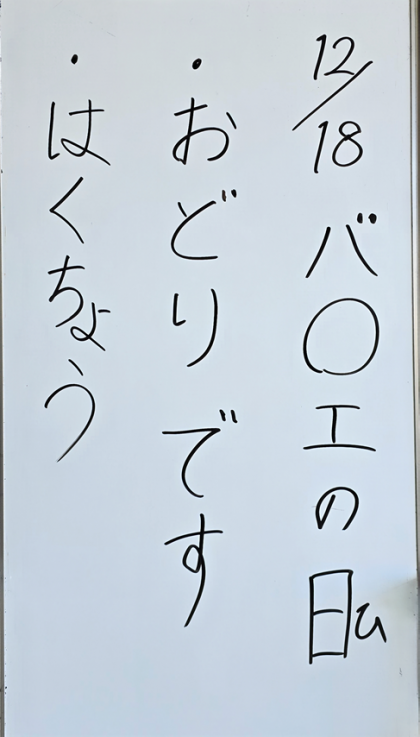 12/18 バ〇エの日ひ
・おどりです
・はくちょう